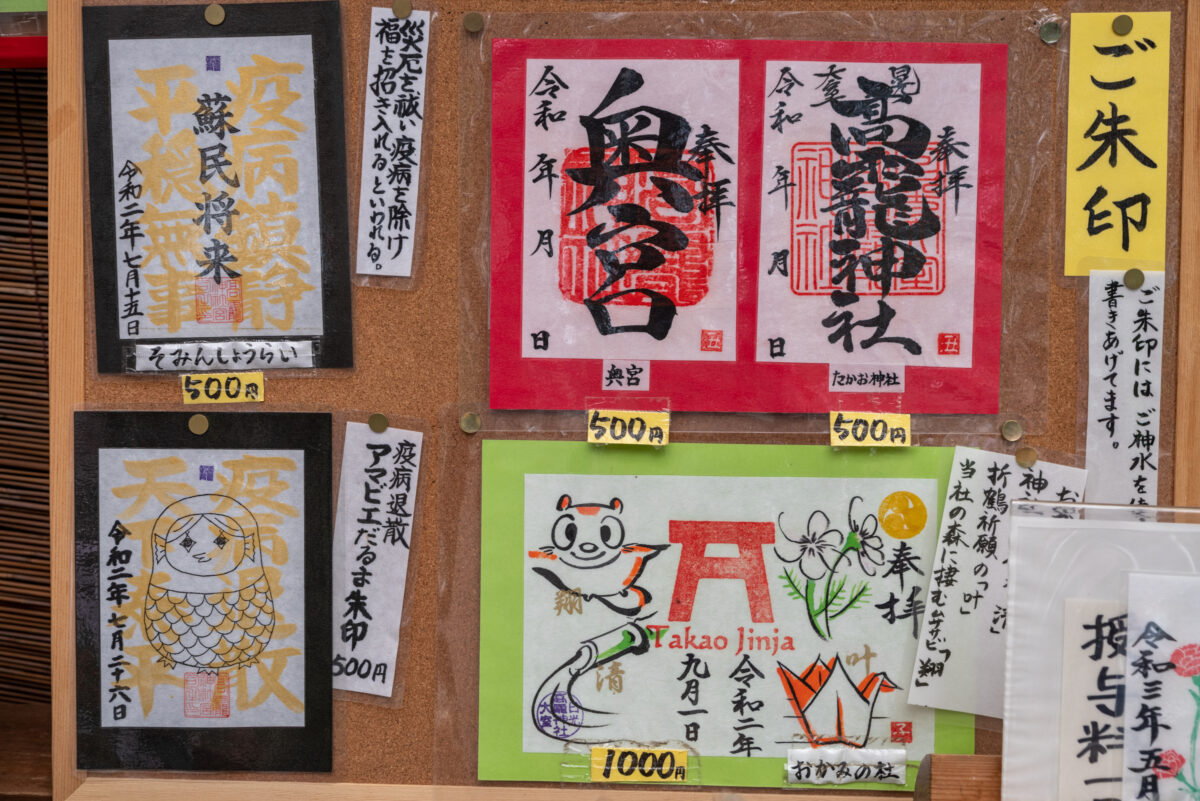 ご朱印
ご朱印にはご神水を
書きあげてます。
奉拝
晃
高龗神社
令和 年 月 日
丑
たかお神社
500円
奉拝
奥宮
令和 年 月 日
丑
奥宮
500円
災厄を祓い疫病を除け
福を招き入れるといわれる。
疫病鎮静
平穏無事
蘇民将来
令和二年七月十五日
そみんしょうらい
500円
疫病退散
アマビエだるま朱印
500円
疫病退散
天下泰平
令和二年七月二十六日
奉拝
Takao Jinja
令和二年
九月一日
翔
清
叶
子
おかみの杜
1000円
折鶴祈願の「叶」
当社の森に棲むムササビ「翔」
授与料
令和三年五月